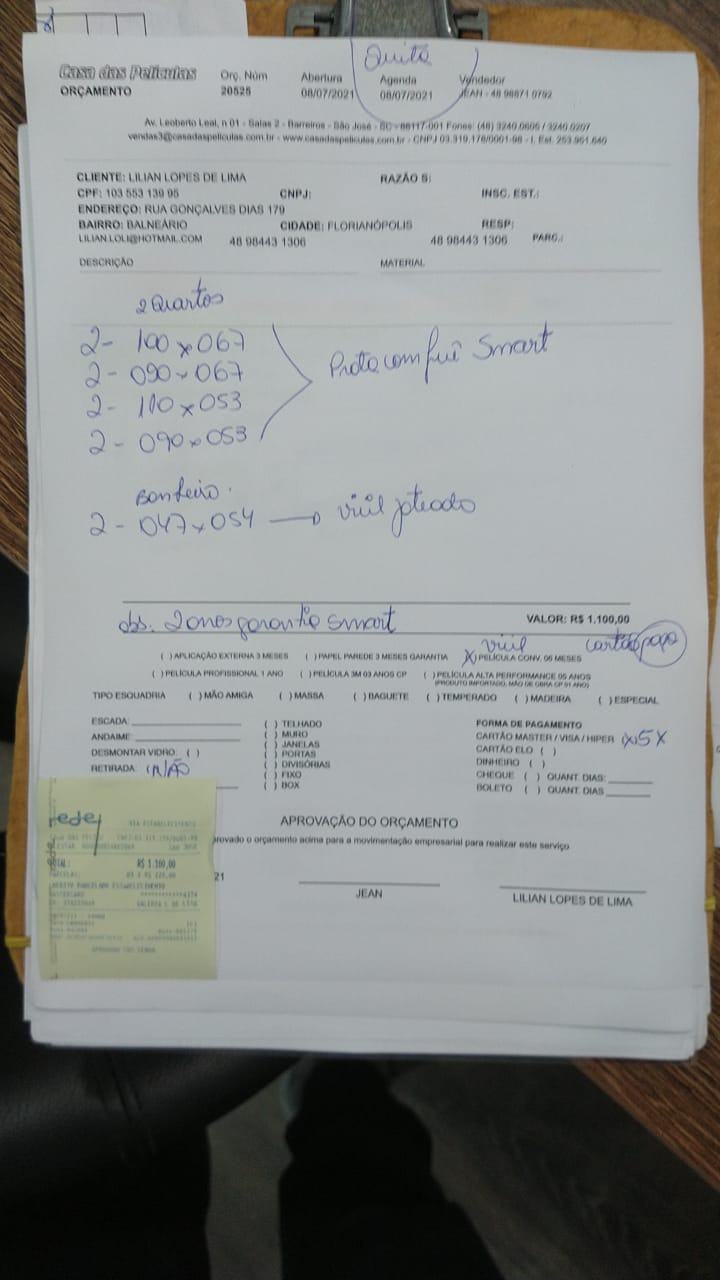 Quita
Casa das Películas Orç. Núm Abertura Agenda Vendedor
ORÇAMENTO 20525 08/07/2021 08/07/2021 JEAN - 48 98871 0792
Av. Leoberto Leal, n 01 - Salas 2 - Barreiros - São José - SC - 88117-001 Fones: (48) 3240.0605 / 3240.0207
vendas3@casadaspeliculas.com.br - www.casadaspeliculas.com.br - CNPJ 03.319.178/0001-98 - I. Est. 253.951.640
CLIENTE: LILIAN LOPES DE LIMA RAZÃO S:
CPF: 103 553 139 95 CNPJ: INSC. EST.:
ENDEREÇO: RUA GONÇALVES DIAS 179
BAIRRO: BALNEÁRIO CIDADE: FLORIANÓPOLIS RESP:
LILIAN.LOLI@HOTMAIL.COM 48 98443 1306 48 98443 1306 PARC.:
DESCRIÇÃO MATERIAL
2 Quartos
2- 100 x 067
2- 090 x 067
2- 110 x 053
2- 090 x 053
Smart
Banheiro.
2- 047 x 054
obs. 2 anos garantia smart VALOR: R$ 1.100,00
cartão pago
( ) APLICAÇÃO EXTERNA 3 MESES ( ) PAPEL PAREDE 3 MESES GARANTIA (X) PELÍCULA CONV. 06 MESES
( ) PELÍCULA PROFISSIONAL 1 ANO ( ) PELÍCULA 3M 03 ANOS CP ( ) PELÍCULA ALTA PERFORMANCE 05 ANOS
(PRODUTO IMPORTADO, MÃO DE OBRA CP 01 ANO)
TIPO ESQUADRIA ( ) MÃO AMIGA ( ) MASSA ( ) BAGUETE ( ) TEMPERADO ( ) MADEIRA ( ) ESPECIAL
ESCADA: ( ) TELHADO FORMA DE PAGAMENTO
ANDAIME: ( ) MURO CARTÃO MASTER / VISA / HIPER (x) 5X
( ) JANELAS CARTÃO ELO ( )
DESMONTAR VIDRO: ( ) ( ) PORTAS DINHEIRO ( )
RETIRADA: ( ) NÃO ( ) DIVISÓRIAS CHEQUE ( ) QUANT. DIAS:
( ) FIXO BOLETO ( ) QUANT. DIAS
( ) BOX
APROVAÇÃO DO ORÇAMENTO
rovado o orçamento acima para a movimentação empresarial para realizar este serviço
21
JEAN LILIAN LOPES DE LIMA
rede
VIA ESTABELECIMENTO
TOTAL: R$ 1.100,00
APROVADO COM SENHA